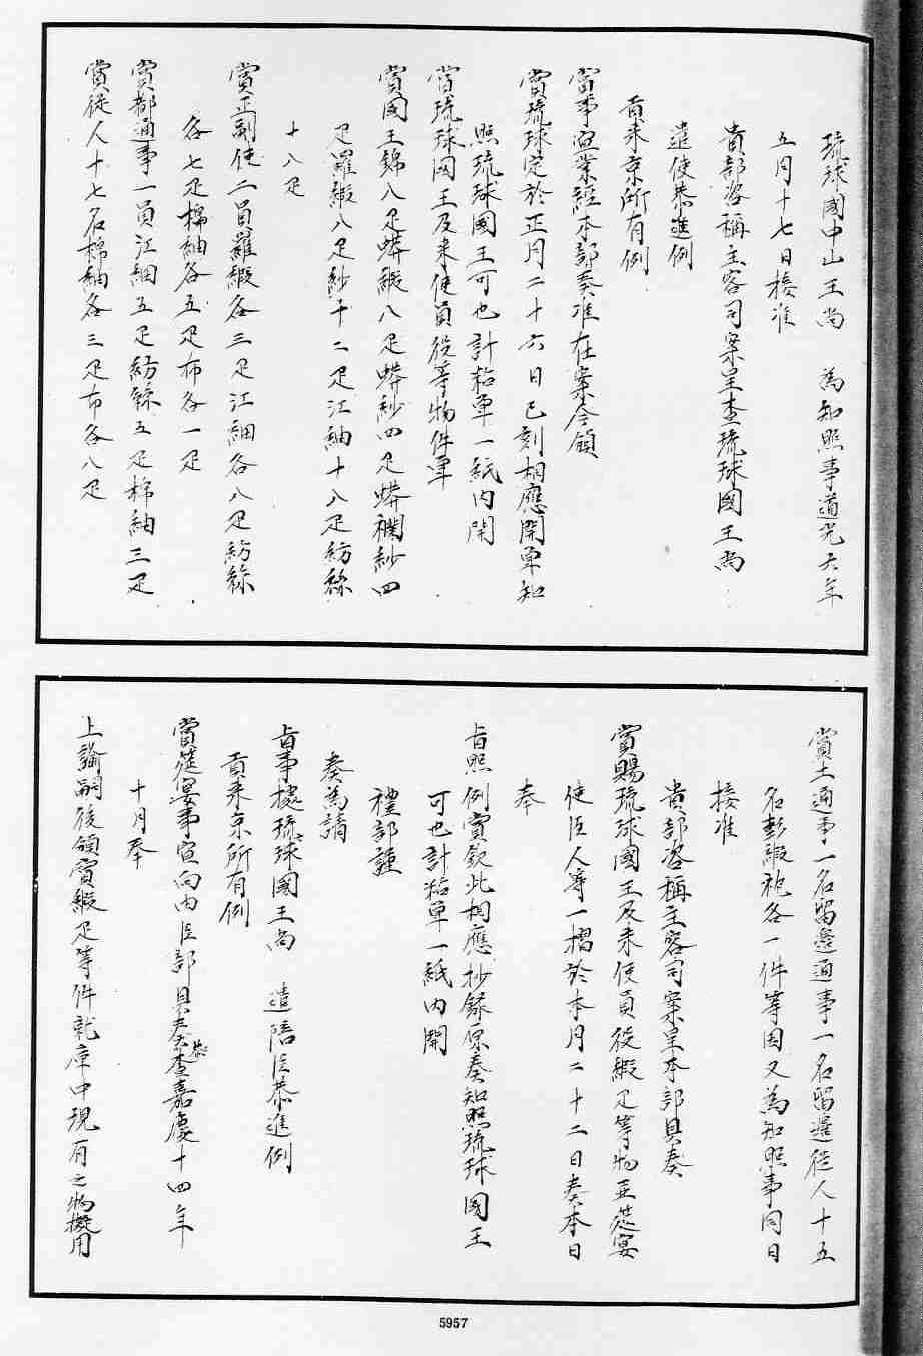 琉球國中山王尚　為知照事道光六年
五月十七日接准
貴部咨稱主客司案呈查琉球國王尚
遣使恭進例
貢來京所有例
賞事宜業經本部奏准在案今領
賞琉球定於正月二十六日巳刻相應開單知
照琉球國王可也計粘單一紙內開
賞琉球國王及来使員役等物件單
賞國王錦八疋蟒緞八疋蟒紗四疋蟒襴紗四
疋羅緞八疋紗十二疋江紬十八疋紡絲
十八疋
賞正副使二員羅緞各三疋江細各八疋紡絲
各七疋棉紬各五疋布各一疋
賞都通事一員江細五疋紡絲五疋棉紬三疋
賞從人十七名棉紬各三疋布各八疋
賞土通事一名留邊通事一名留邊從人十五
名彭緞袍各一件等因又為知照事同日
接准
貴部咨稱主客司案呈本部具奏
賞賜琉球國王及来使員役緞疋等物並筵宴
使臣人等一摺於本月二十二日奏本日
奉
旨照例賞欽此相應抄錄原奏知照琉球國王
可也計粘單一紙內開
禮部謹
奏為請
旨事據琉球國王尚　遣陪臣恭進例
貢来京所有例
賞筵宴事宜向由臣部具奏恭查嘉慶十四年
十月奉
上諭嗣後領賞緞疋等件就庫中現有之物擬用
5957